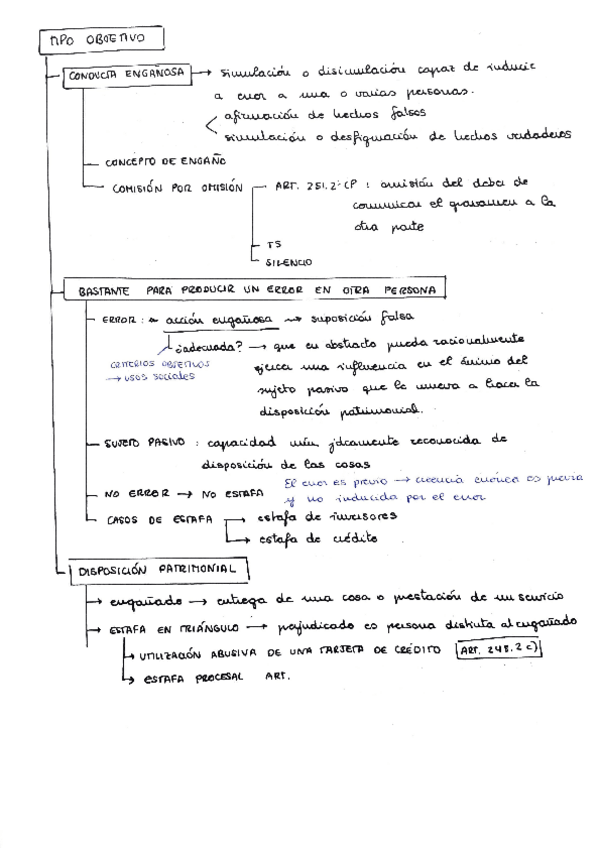 TIPO OBJETIVO
CONDUCTA ENGAÑOSA → simulación o disimulación capaz de inducir
a error a una o varias personas.
afirmación de hechos falsos
simulación o desfiguración de hechos verdaderos
CONCEPTO DE ENGAÑO
COMISIÓN POR OMISIÓN — ART. 251.2º CP : omisión del deber de
comunicar el gravamen a la
otra parte
TS
SILENCIO
BASTANTE PARA PRODUCIR UN ERROR EN OTRA PERSONA
ERROR : acción engañosa → suposición falsa
¿adecuada? → que en abstracto pueda racionalmente
CRITERIOS OBJETIVOS
→ USOS SOCIALES
ejercer una influencia en el ánimo del
sujeto pasivo que le mueva a hacer la
disposición patrimonial.
SUJETO PASIVO : capacidad mín. jdcamente reconocida de
disposición de las cosas
El error es previo → creencia errónea es previa
NO ERROR → NO ESTAFA
y no inducida por el error
CASOS DE ESTAFA → estafa de inversores
→ estafa de crédito
DISPOSICIÓN PATRIMONIAL
→ engañado → entrega de una cosa o prestación de un servicio
→ ESTAFA EN TRIÁNGULO → perjudicado es persona distinta al engañado
→ UTILIZACIÓN ABUSIVA DE UNA TARJETA DE CRÉDITO ART. 248.2 c)
→ ESTAFA PROCESAL ART.